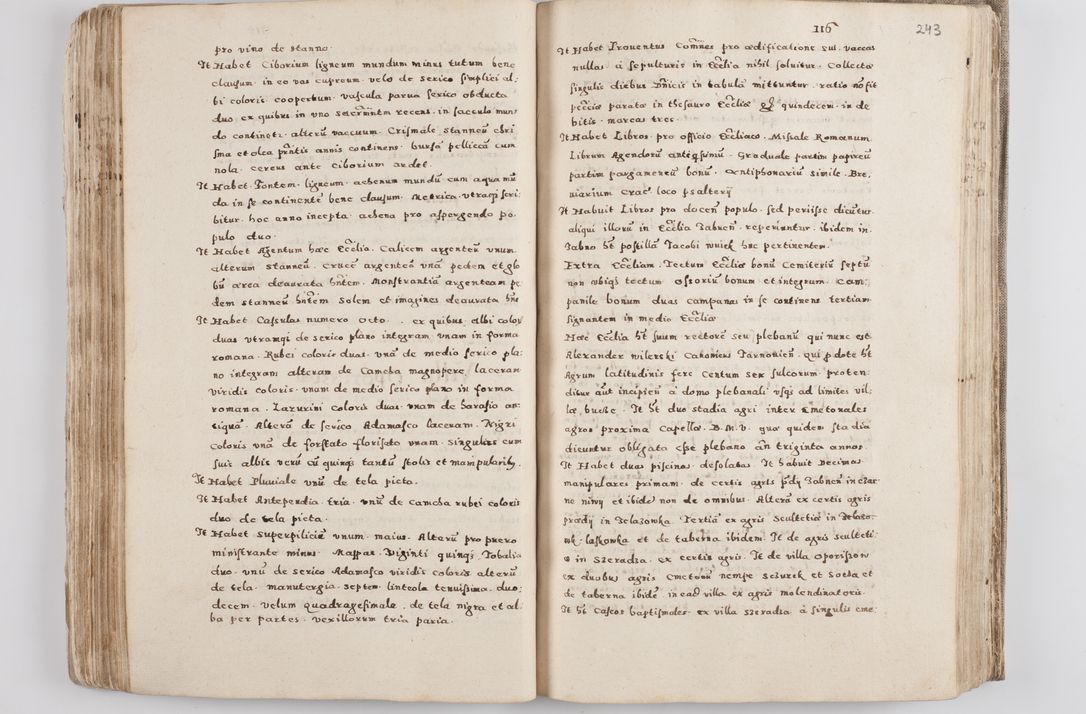 pro vino de stanno.
It Habet Ciborium ligneum mundum minus tutum bene
clausum. in eo vas cupreum. velo de serico simplici al:
bi coloris coopertum. vascula parua serico obducta
duo. ex quibus in uno sacrm̃ntm recens. in sacculo mun:
do contineti. alterũ vaccuum. Crismale stanneũ chri
sma et olea pr̃ntis annis continens. bursã pelliceã cum
nola. cereus ante Ciborium ardet.
It Habet Fontem. ligneum. ahenum mundũ cum aqua mũ
da in se continentẽ bene clausum. Metrica. utraqȝ scri
bitur. hoc anno incepta. ahena pro aspergendo po
pulo duo.
It Habet Agentum hæc Eccl̃ia. Calicem argenteũ unum.
alterum stanneũ. Crucẽ argenteã unã pedem et glo
bũ area deaurata hñtem. Monstrantiã argenteam pe:
dem stanneũ hñtem Solem et imagines deaurata hñs
It Habet Casulas numero octo. ex quibus albi colorˢ
duas utramqȝ de serico plano integram, unam in forma
romana. Rubei coloris duas. unã de medio serico pla:
no integram alteram de Camcha magnopere laceram
viridis coloris. unam de medio serico plano in forma
romana. Lazurini coloris duas unam de harasio an:
tiquã. Alterã de serico Adamasco laceram. Nigri
coloris unã. de forstato florisato unam. singulas cum
suis albis verũ cũ quinqȝ tantũ stolis et manipularibȝ
It Habet Pluviale unũ de tela picta.
It Habet Antependia. tria. unũ de camcha rubei coloris
duo de tela picta.
It Habet superpilicia unum. maius. Alterũ pro puero
ministrante minus. Mappas. Viginti quinqȝ Tobalia
duo. unũ de serico Adamasco viridis coloris alterũ
de tela. manutergia. septem. linteola tenuissima. duo:
decem. velum quadragesimale. de tela nigra et al:
ba per partes. vexillorum tria paria.
116
243
It Habet Prouentus Com̃nes pro ædificatione sui. vaccas
nullas. à sepulturis in Eccl̃ia nihil soluitur. Collecta
singulis diebus Dñicis in tabulã mittuntur. ratio nõ fit
pecc̃ia parata in thesauro Eccl̃iæ quindecem. in de
bitis. marcas tres.
It Habet Libros pro officio Eccl̃iaco. Missale Romanum
Librum Agendorũ antiqisimũ. Graduale partim papireũ
partim pargameneũ bonũ. Antiphonariũ simile. Bre:
uiarium Crac̃ loco psalterij
It Habuit Libros pro docen̄ populo. sed periisse dicũtur.
aliqui illorũ in Eccl̃ia Zabneñ. reperiuntur. ibidem in
Zabno hẽt postillã Jacobi wuiek huc pertinentem.
Extra Eccl̃iam. Tectum Eccl̃iæ bonũ Cemiteriũ septũ
non ubiqȝ tectum ossoriũ bonum et integrum. Cam:
panile bonum duas campanas in se continens tertiam
signantem in medio Eccl̃iæ
Hæc Eccl̃ia hẽt suum rectorẽ seu plebanũ qui nunc est
Alexander wilcrski Canonicus Tarnouieñ. qui p dote hẽt
Agrum latitudinis fere Centum sex sulcorum proten:
ditur aũt incipieñ à domo plebanali usqȝ ad limites vil:
læ buche. It hẽt duo stadia agri inter cmetonales
agros proxima Capellæ. B. M. V. quæ quidem stadia
dicuntur obligata esse plebano añ triginta annos.
It Habet duas piscinas desolatas. It habuit Decimas
manipulares primam. de certis agris p̃dij Zabneñ in czar
ne niwy et ibidẽ non de omnibus. Alterã ex certis agris
prædij in Zelazowka. Tertiã ex agris Scultetiæ in
laskowka et de taberna ibidem. It de agro sculteti:
æ in Szeradza. ex certis agris. It de villa oporiszow
ex duobus agris Cmetonũ nempe sczurek et Socha et
de taberna ibidẽ. in eadẽ villa ex agris molendinatoris.
It hẽt Caseos baptismales. ex villa Szeradza à singulis cme: